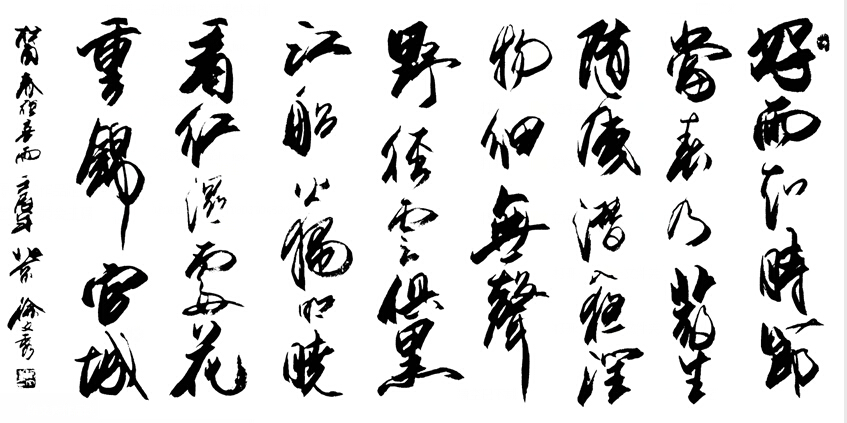 好雨知時節
當春乃發生
隨風潛入夜潤
物細無聲
野徑雲俱黑
江船火獨明曉
看紅濕處花
重錦官城
杜甫春夜喜雨 徐文秀